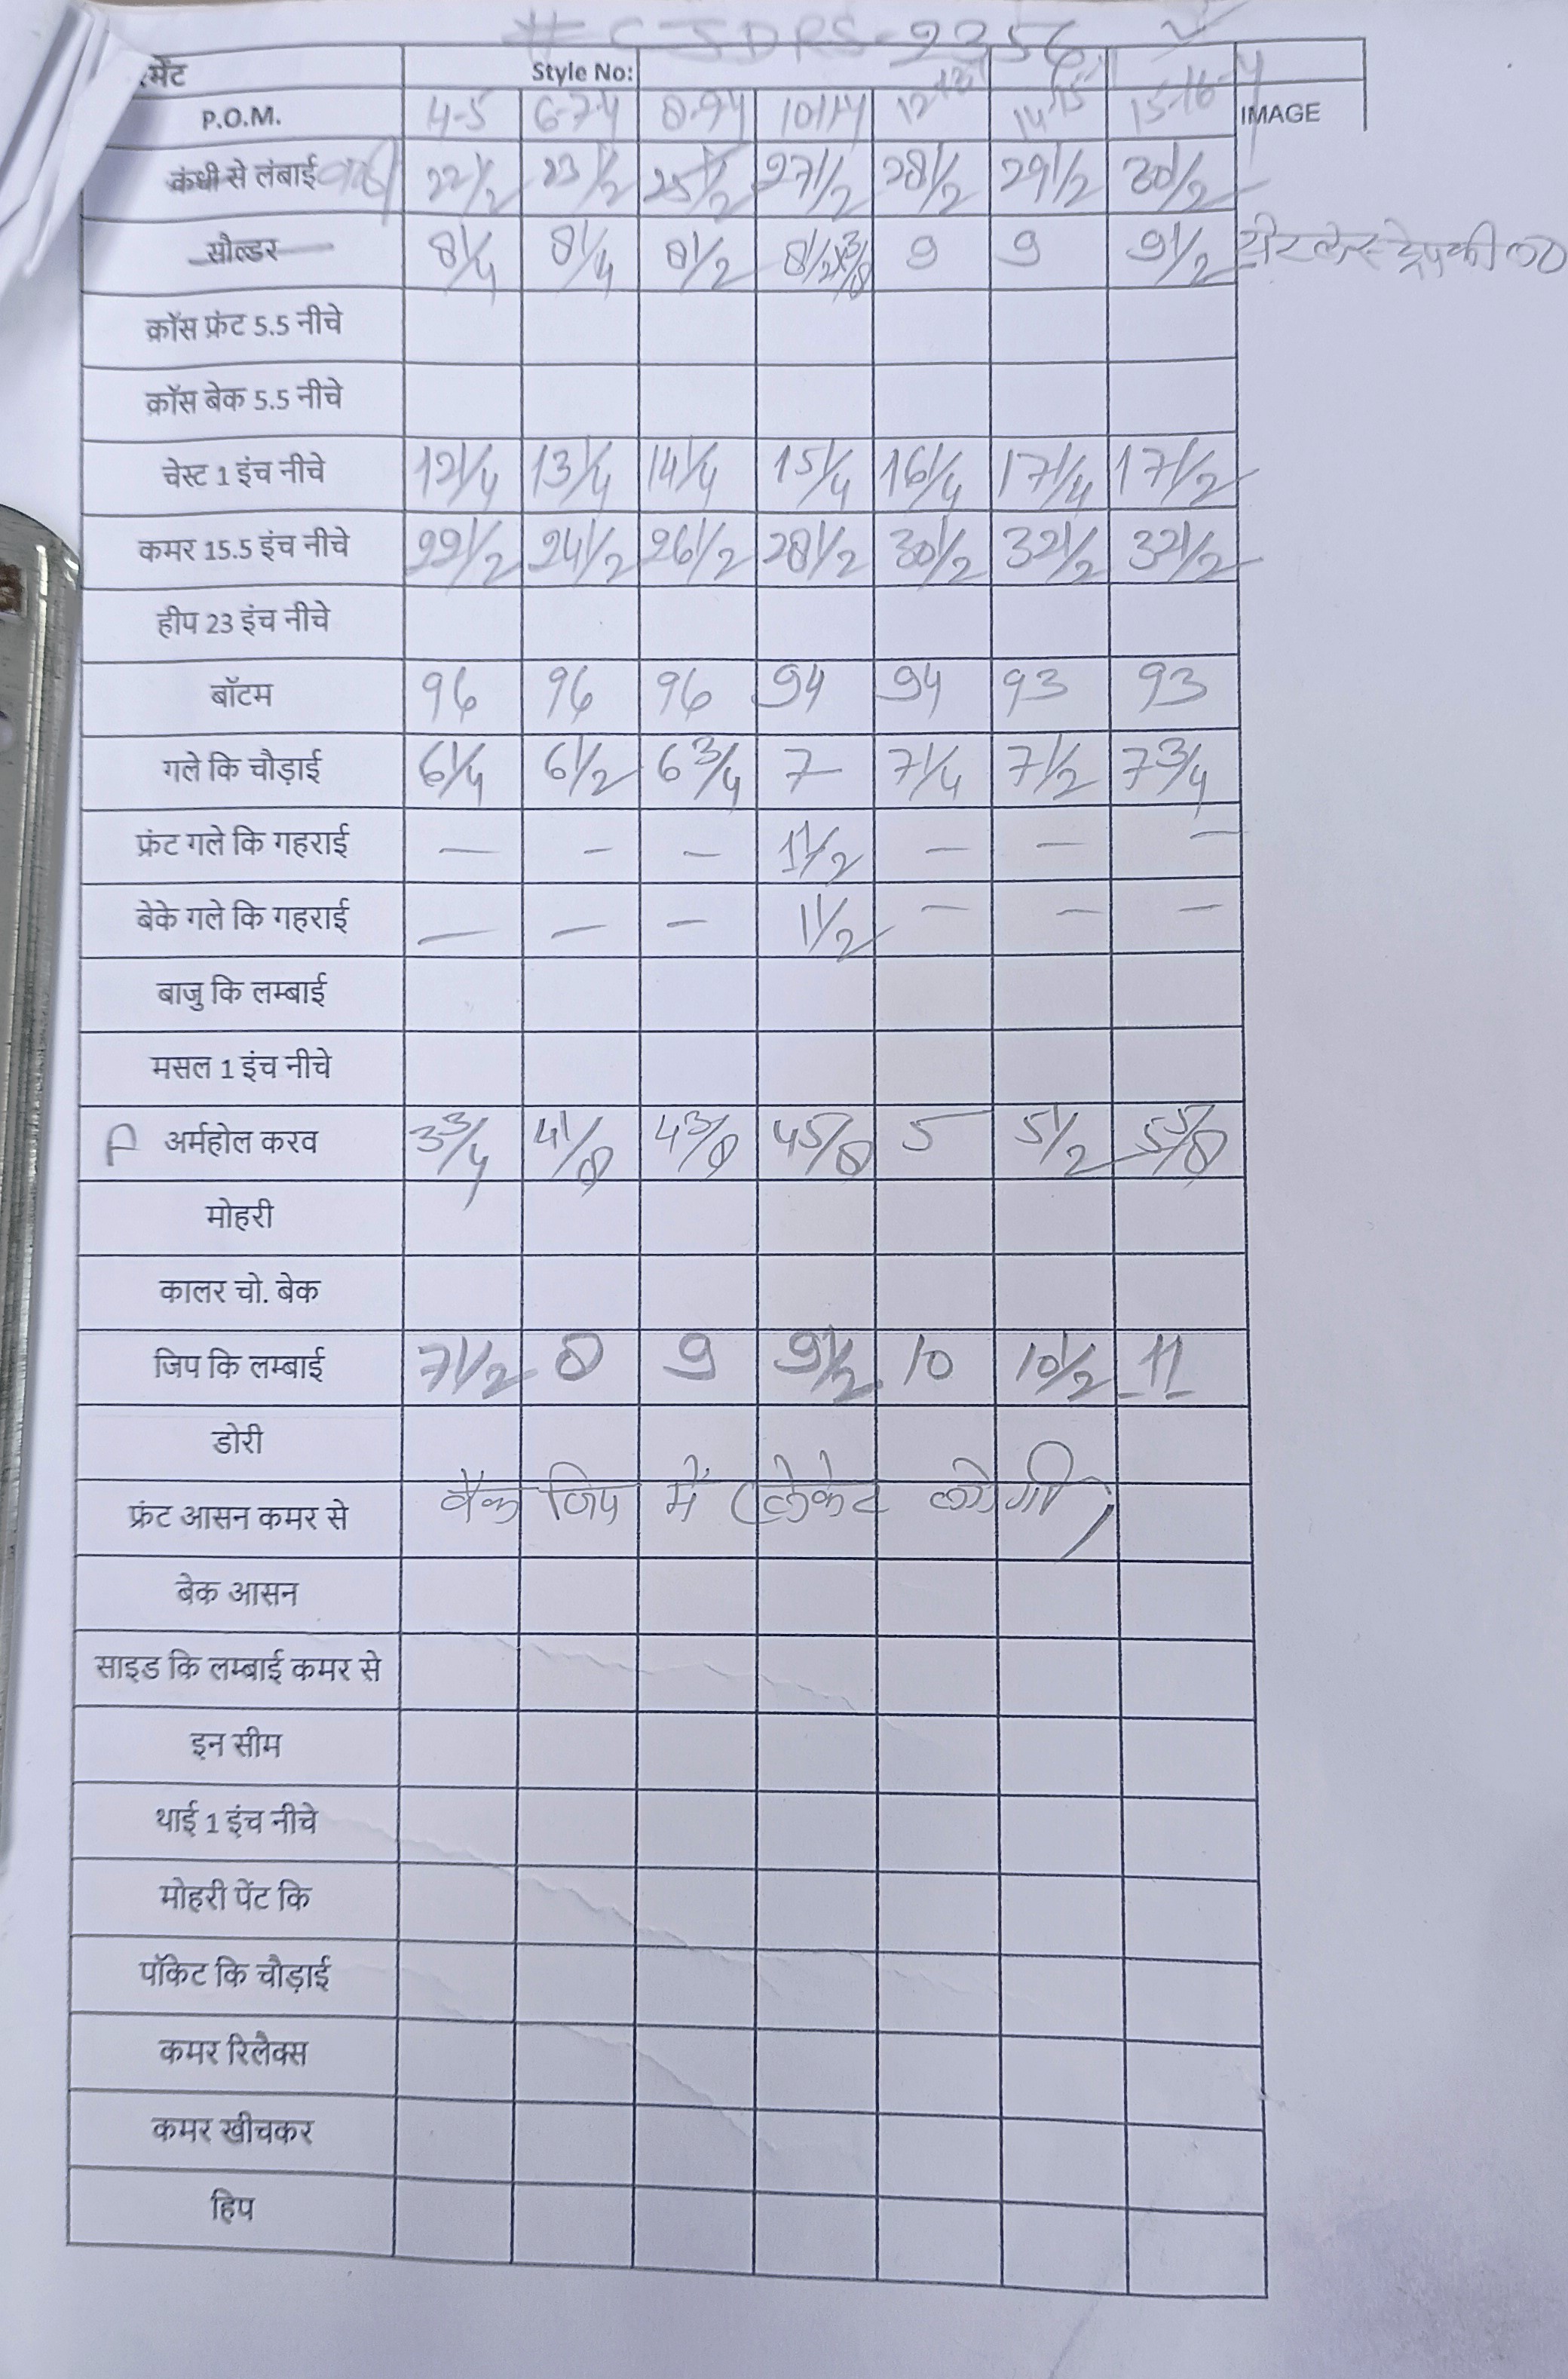 # CJDRS-2256
र्मेंट Style No:
P.O.M. 4-5 6-7-Y 8-9Y 10-11-Y 12-13 14-15 15-16-Y IMAGE
कंधी से लंबाई 22 1/2 23 1/2 25 1/2 27 1/2 28 1/2 29 1/2 30 1/2
सौल्डर 8 1/4 8 1/4 8 1/2 8 1/2 x 3/8 9 9 9 1/2
क्रॉस फ्रंट 5.5 नीचे
क्रॉस बेक 5.5 नीचे
चेस्ट 1 इंच नीचे 12 1/4 13 1/4 14 1/4 15 1/4 16 1/4 17 1/4 17 1/2
कमर 15.5 इंच नीचे 22 1/2 24 1/2 26 1/2 28 1/2 30 1/2 32 1/2 32 1/2
हीप 23 इंच नीचे
बॉटम 96 96 96 94 94 93 93
गले कि चौड़ाई 6 1/4 6 1/2 6 3/4 7 7 1/4 7 1/2 7 3/4
फ्रंट गले कि गहराई — — — 1 1/2 — — —
बेके गले कि गहराई — — — 1 1/2 — — —
बाजु कि लम्बाई
मसल 1 इंच नीचे
A अर्महोल करव 3 3/4 4 1/8 4 3/8 4 5/8 5 5 1/2 5 5/8
मोहरी
कालर चो. बेक
जिप कि लम्बाई 7 1/2 8 9 9 1/2 10 10 1/2 11
डोरी
फ्रंट आसन कमर से बैक जिप में
बेक आसन
साइड कि लम्बाई कमर से
इन सीम
थाई 1 इंच नीचे
मोहरी पेंट कि
पॉकेट कि चौड़ाई
कमर रिलैक्स
कमर खीचकर
हिप